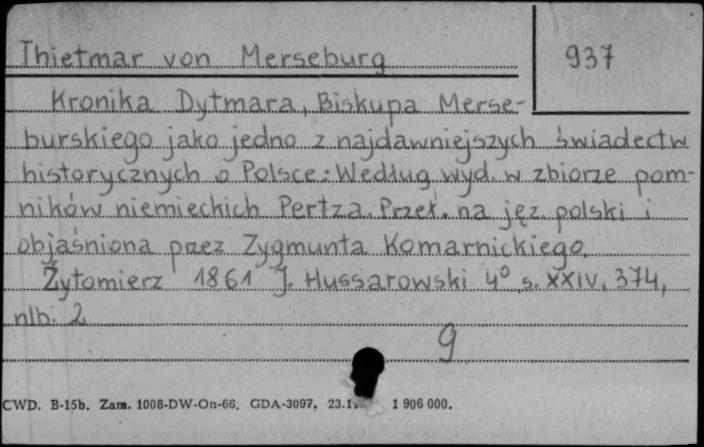 Thietmar von Merseburg 937
Kronika Dytmara, Biskupa Merse-
burskiego jako jedno z najdawniejszych świadectw
historycznych o Polsce: Według wyd. w zbiorze pom-
ników niemieckich Pertza. Przeł. na jęz. polski i
objaśniona przez Zygmunta Komarnickiego.
Żytomierz 1861 J. Hussarowski 4° s. XXIV, 374,
nlb. 2
9
CWD. B-15b. Zam. 1008-DW-On-66. GDA-3097. 1 906 000.